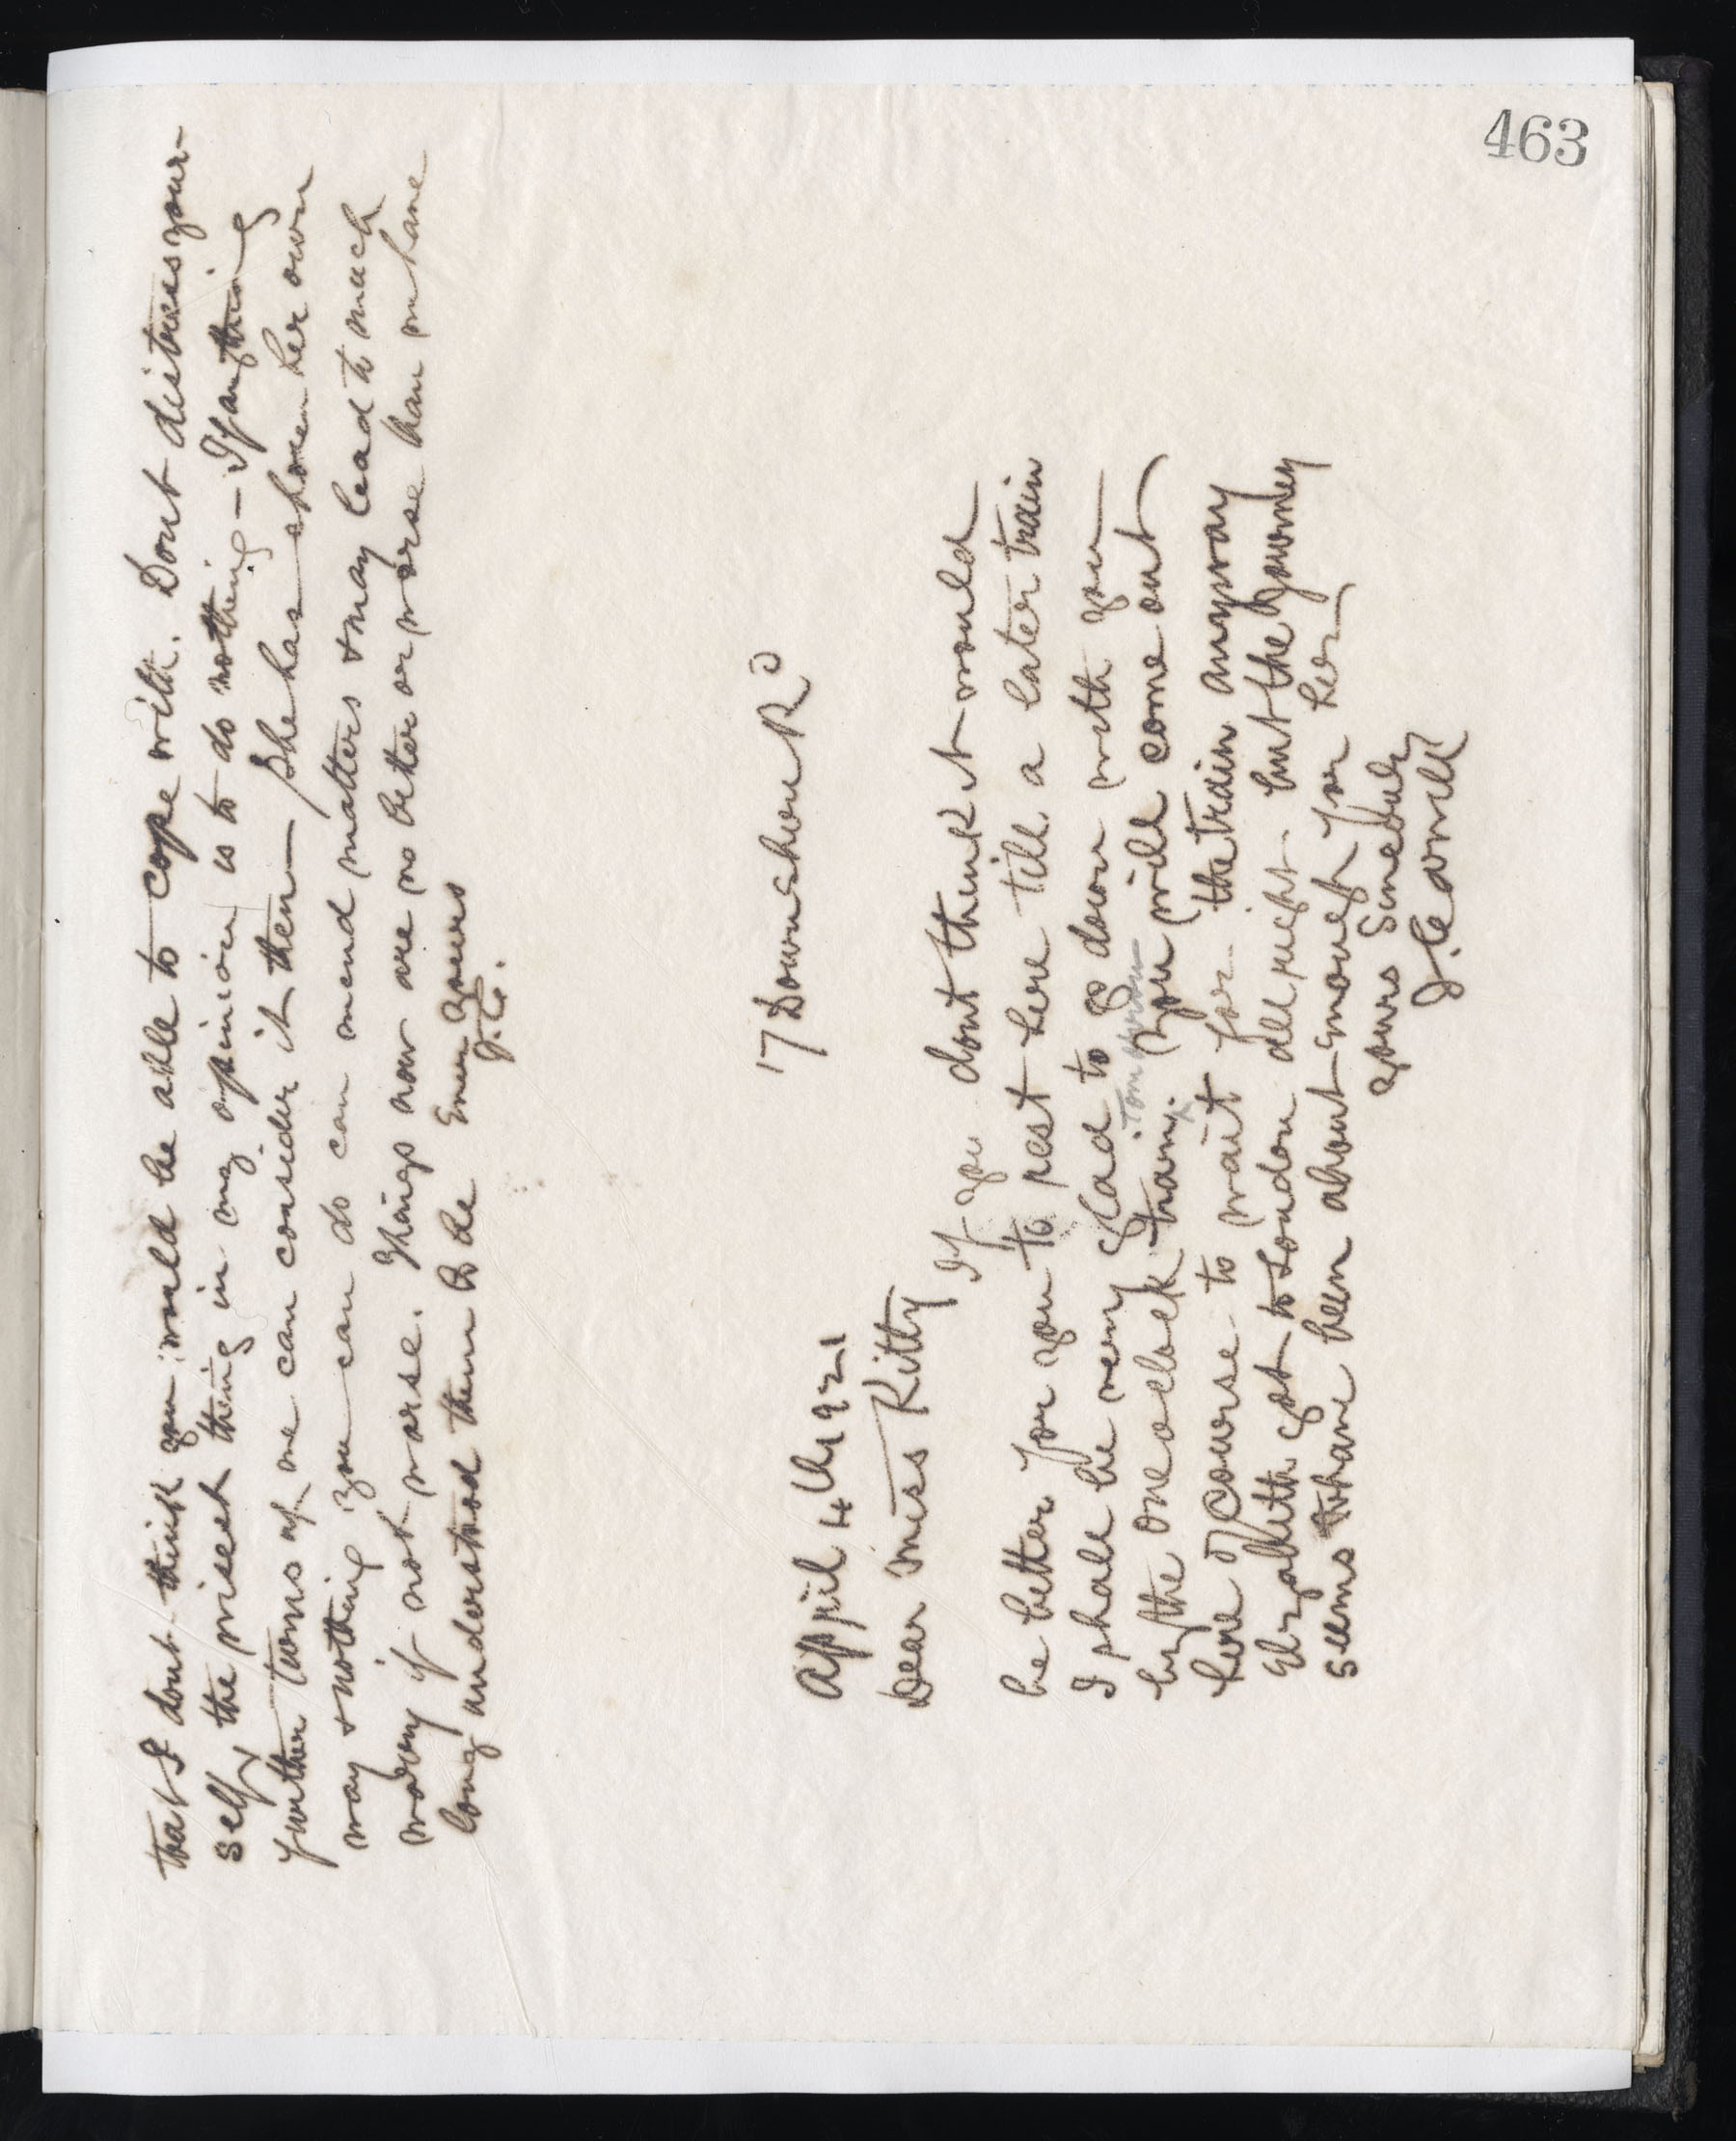 463
that I dont think you would be able to cope with. Dont distress your-
self, the wisest thing in my opinion is to do nothing - If anything
further turns up we can consider it then - She has shown her own
way & nothing you can do can mend matters & may lead to much
worry if not worse. Things now are no better or worse than we have
long understood them to be Ever yours
J.C.
17 Downshire Rd
April 4th 1921
Dear Miss Kitty
If you dont think it would
be better for you to rest here till a later train
I shall be very glad to go down with you
tomorrow
by the one oclock train. You will come out
here of course to wait for the train anyway
Elizabeth got to London all right but the journey
seems to have been about enough for her
Yours Sincerely
J. Connell